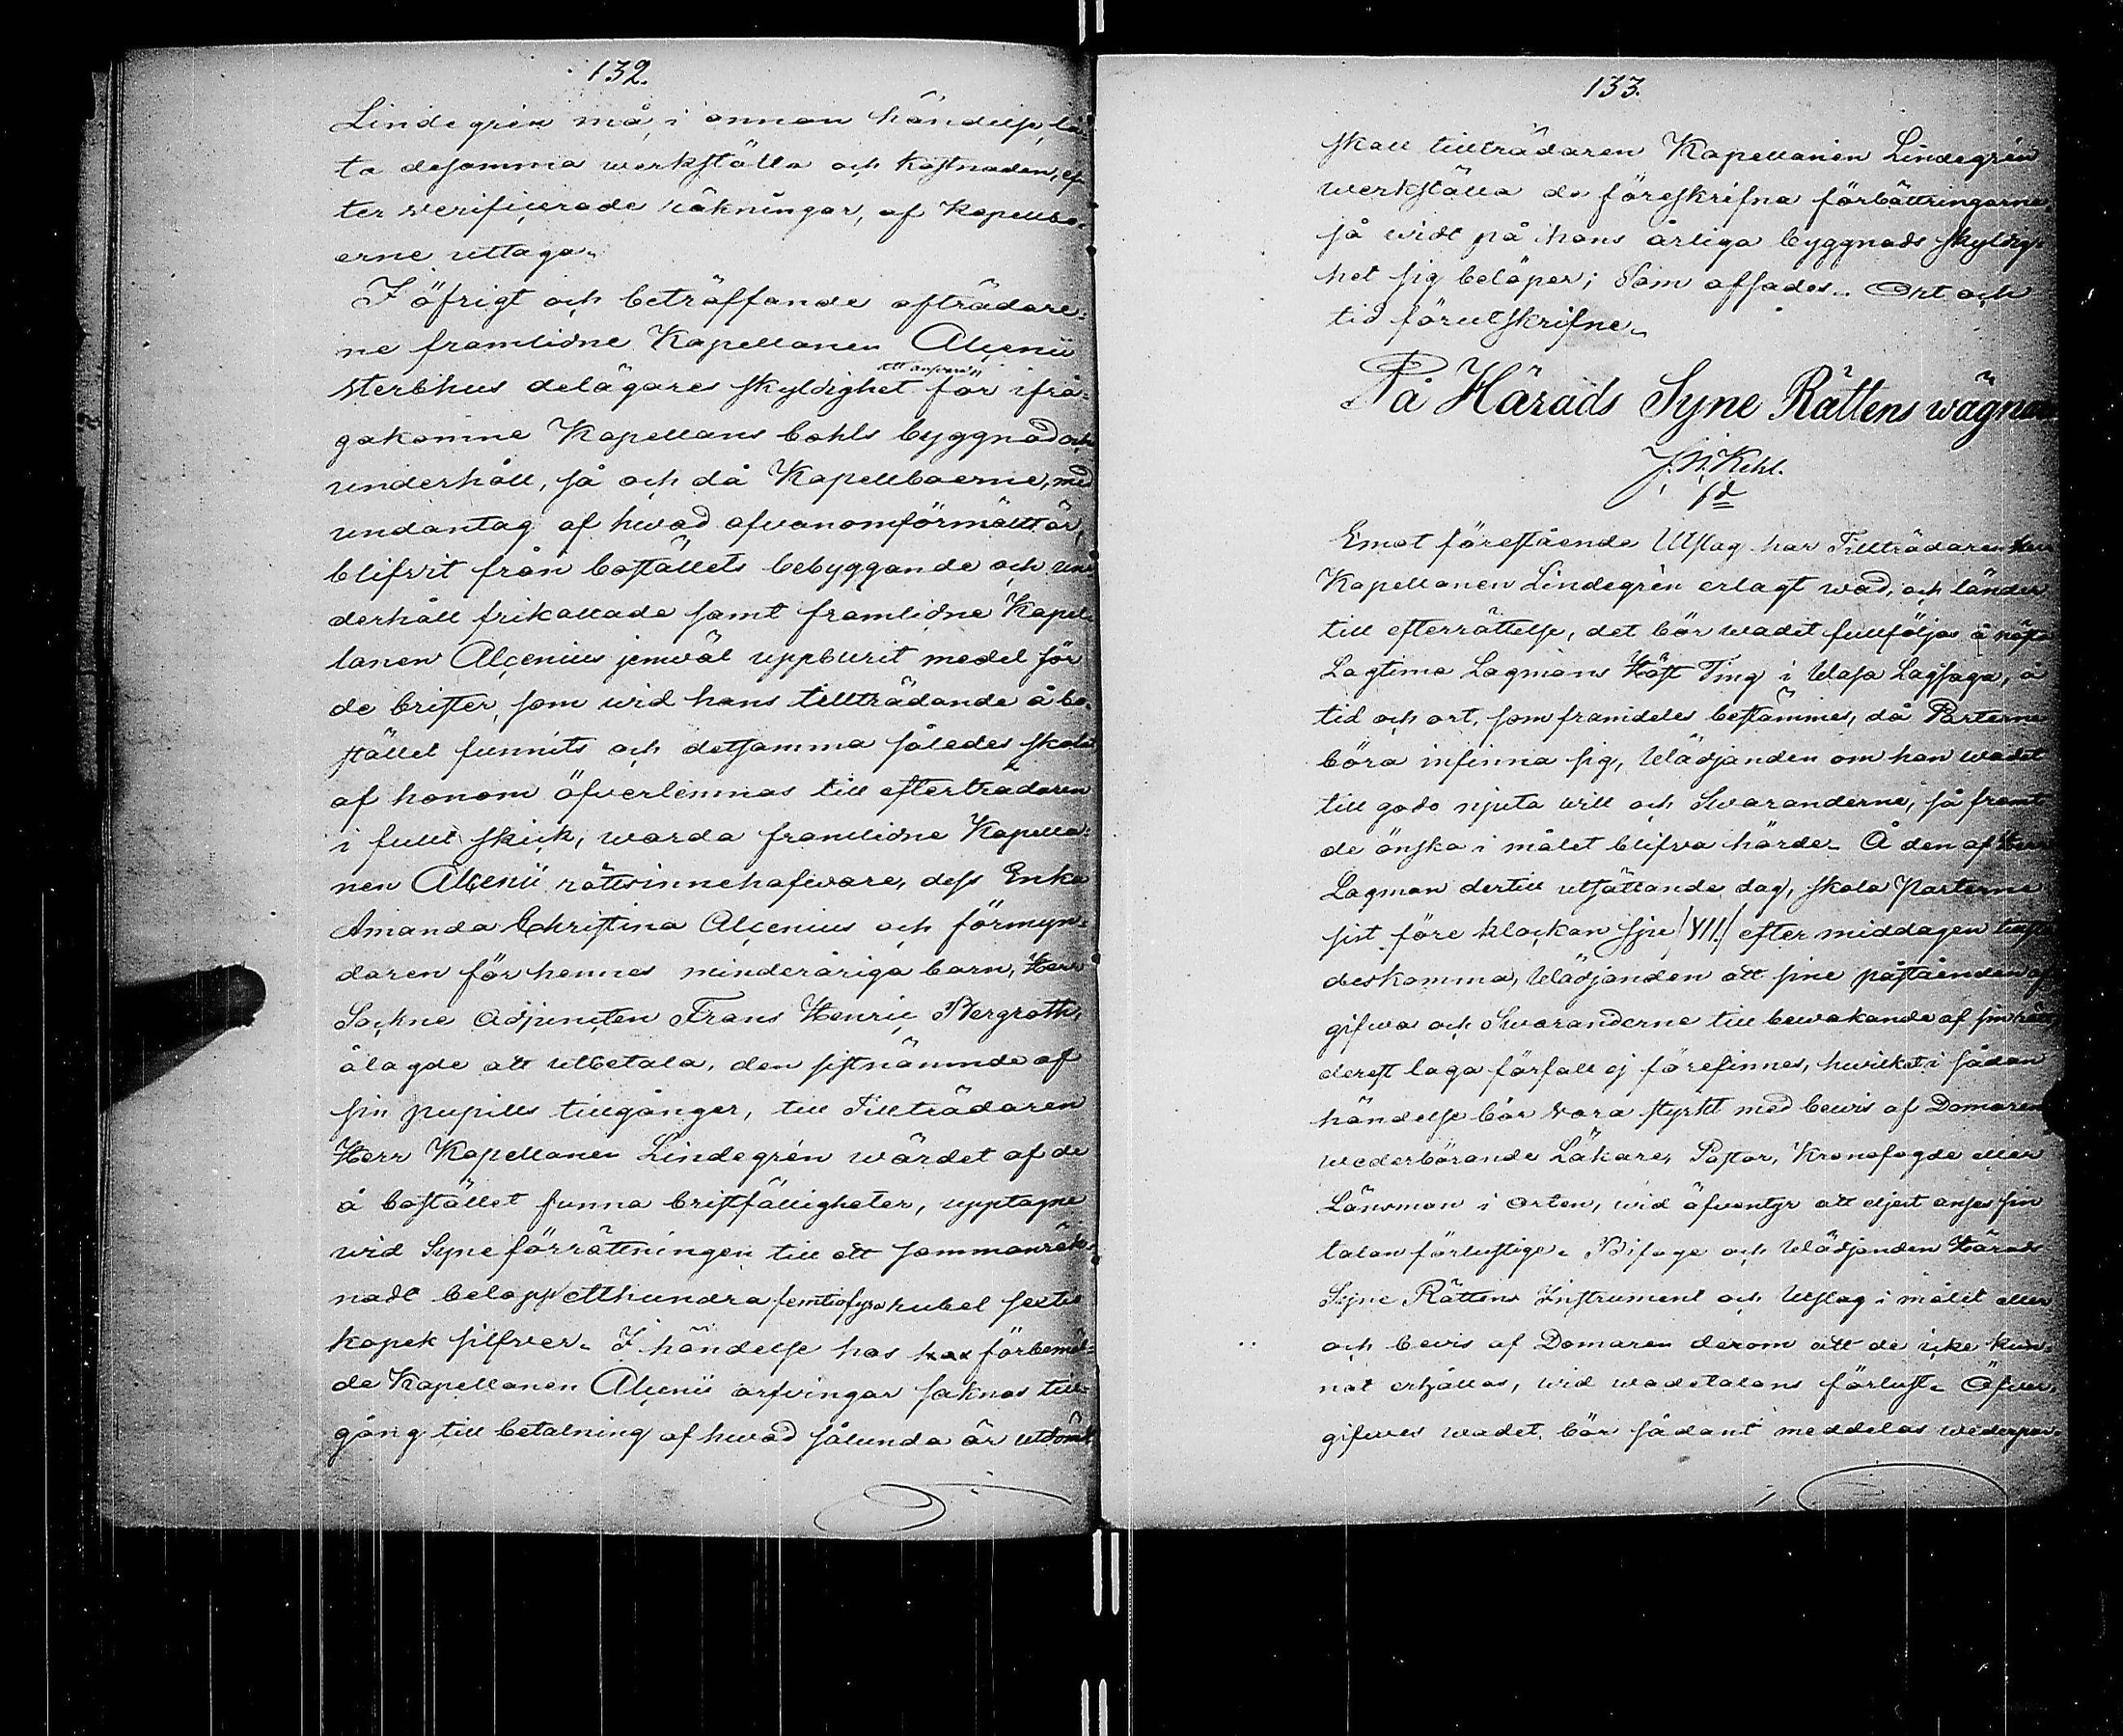 132.
Lindegrén må, i annan händelse, lå
ta desamma werkställa och kostnaden, ef
ter verificerade räkningar, af Kapellbo-
erne uttaga.
I öfrigt och beträffande afträdare-
ne framlidne Kapellanen Alcenii
att ansvara
sterbhus delägares skyldighet för ifrå-
gakomne Kapellans bohls byggnad och
underhåll, så och då Kapellboerne, med
undantag af hwad ofvanomförmält är,
blifvit från boställets bebyggande och un-
derhåll frikallade samt framlidne Kapel-
lanen Alcenius jemväl uppburit medel för
de brister, som wid hans tillträdande å bo-
stället funnits och detsamma således skolat
af honom öfverlemnas till efterträdaren
i fullt skick, warda framlidne Kapella-
nen Alcenii rättsinnehafware, dess Enka
Amanda Christina Alcenius och förmyn-
daren för hennes minderåriga barn, Herr
Sockne Adjuncten Frans Henric Bergroth,
ålagde att utbetala, den sistnämnde af
sin pupills tillgånger, till Tillträdaren
Herr Kapellanen Lindegrén wärdet af de
å bostället funna bristfälligheter, upptagne
wid Syneförrättningen till ett sammanräk-
nadt belopp etthundra femtiofyra rubel sextio
kopek silfver. I händelse hos förbemäl-
de Kapellanen Alcenii arfvingar saknas till-
gång till betalning af hwad sålunda är utdömt
133.
skall tillträdaren Kapellanen Lindegrén
werkställa de föreskrifna förbättringarne,
så widt på hans årliga byggnads skyldig-
het sig belöper; Som afsades. Ort och
tid förutskrifne.
På Härads Syne Rättens wägnar
J. W. Kehl.
Emot förestående Utslag har Tillträdaren Herr
Kapellanen Lindegrén erlagt wad, och länder
till efterrättelse, det bör wadet fullföljas å nästa
Lagtima Lagmans Höst Ting i Wasa Lagsaga, å
tid och ort, som framdeles bestämmes, då Parterne
böra infinna sig, Wädjanden om han wadet
till godo njuta will och Swaranderne, så framt
de önska i målet blifva hörde. Å den af Herr
Lagman dertill utsättande dag, skola Parterne
sist före klockan sju /VII./ efter middagen
deskomma, Wädjanden att sine påståenden af
gifwa och Swaranderne till bewakande af sin rätt,
derest laga förfall ej förefinnes, hwilket i sådan
händelse bör vara styrkt med bewis af Domaren
wederbörande Läkare, Pastor, Kronofogde eller
Länsman i orten, wid äfventyr att eljest anses sin
talan förlustige. Bifoge och Wädjanden Härads
Syne Rättens Instrument och Utslag i målet eller
och bevis af Domaren derom att de icke kun-
nat erhållas, wid wadetalans förlust. Öfver-
gifwes wadet, bör sådant meddelas wederpar-